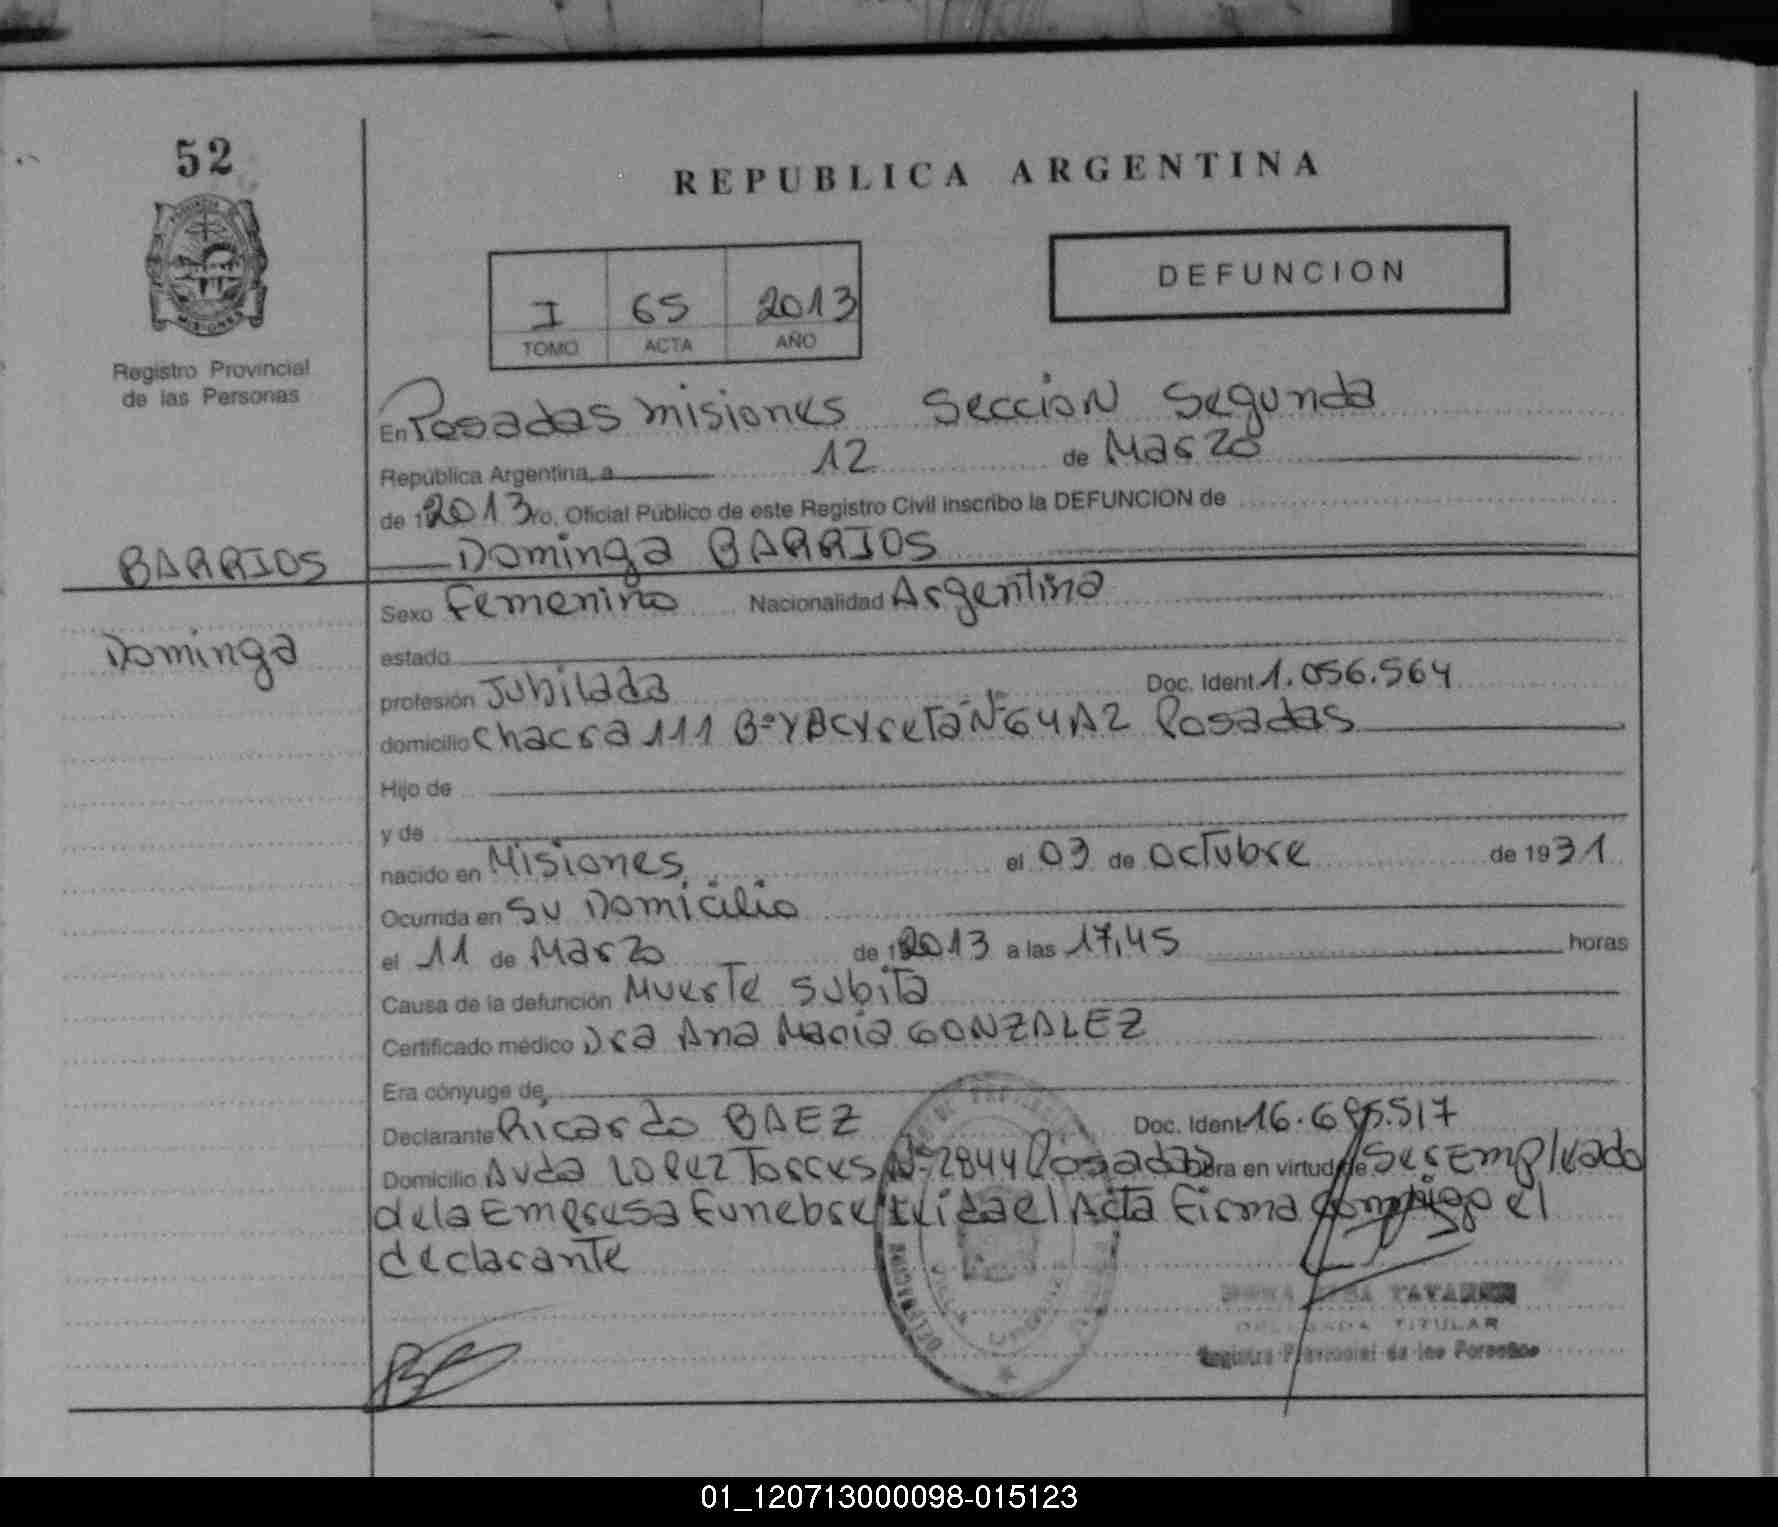 52
REPUBLICA ARGENTINA
DEFUNCION
I 65 2013
TOMO ACTA AÑO
Registro Provincial
de las Personas
En Posadas misiones Seccion Segunda
República Argentina, a 12 de Marzo
de 2013 Yo, Oficial Público de este Registro Civil inscribo la DEFUNCION de
BARRIOS
Dominga BARRIOS
Sexo Femenino Nacionalidad Argentina
Dominga
estado
profesión Jubilada Doc. Ident 1.056.564
domicilio Chacra 111 Bº YACYretá Nº 64 A2 Posadas
Hijo de
y de
nacido en Misiones el 03 de octubre de 1931
Ocurrida en su Domicilio
el 11 de Marzo de 2013 a las 17,45 horas
Causa de la defunción Muerte Subita
Certificado médico Dra Ana Maria GONZALEZ
Era cónyuge de,
Declarante Ricardo BAEZ Doc. Ident 16.695.517
Domicilio Avda Lopez Torres Nº 2844 Posadas Obra en virtud de Ser Empleado
de la Empresa Funebre leida el Acta Firma conmigo el
declarante
TITULAR
Registro Provincial de las Personas
01_120713000098-015123